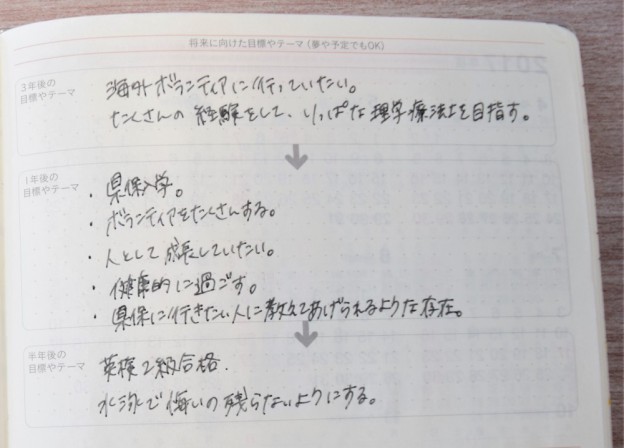 将来に向けた目標やテーマ(夢や予定でもOK)
3年後の
目標やテーマ
海外ボランティアに行っていたい。
たくさんの経験をして、りっぱな理学療法士を目指す。
1年後の
目標やテーマ
・県保入学。
・ボランティアをたくさんする。
・人として成長していたい。
・健康的に過ごす。
・県保に行きたい人に教えてあげられるような存在。
半年後の
目標やテーマ
英検2級合格.
水泳で悔いの残らないようにする。
2017